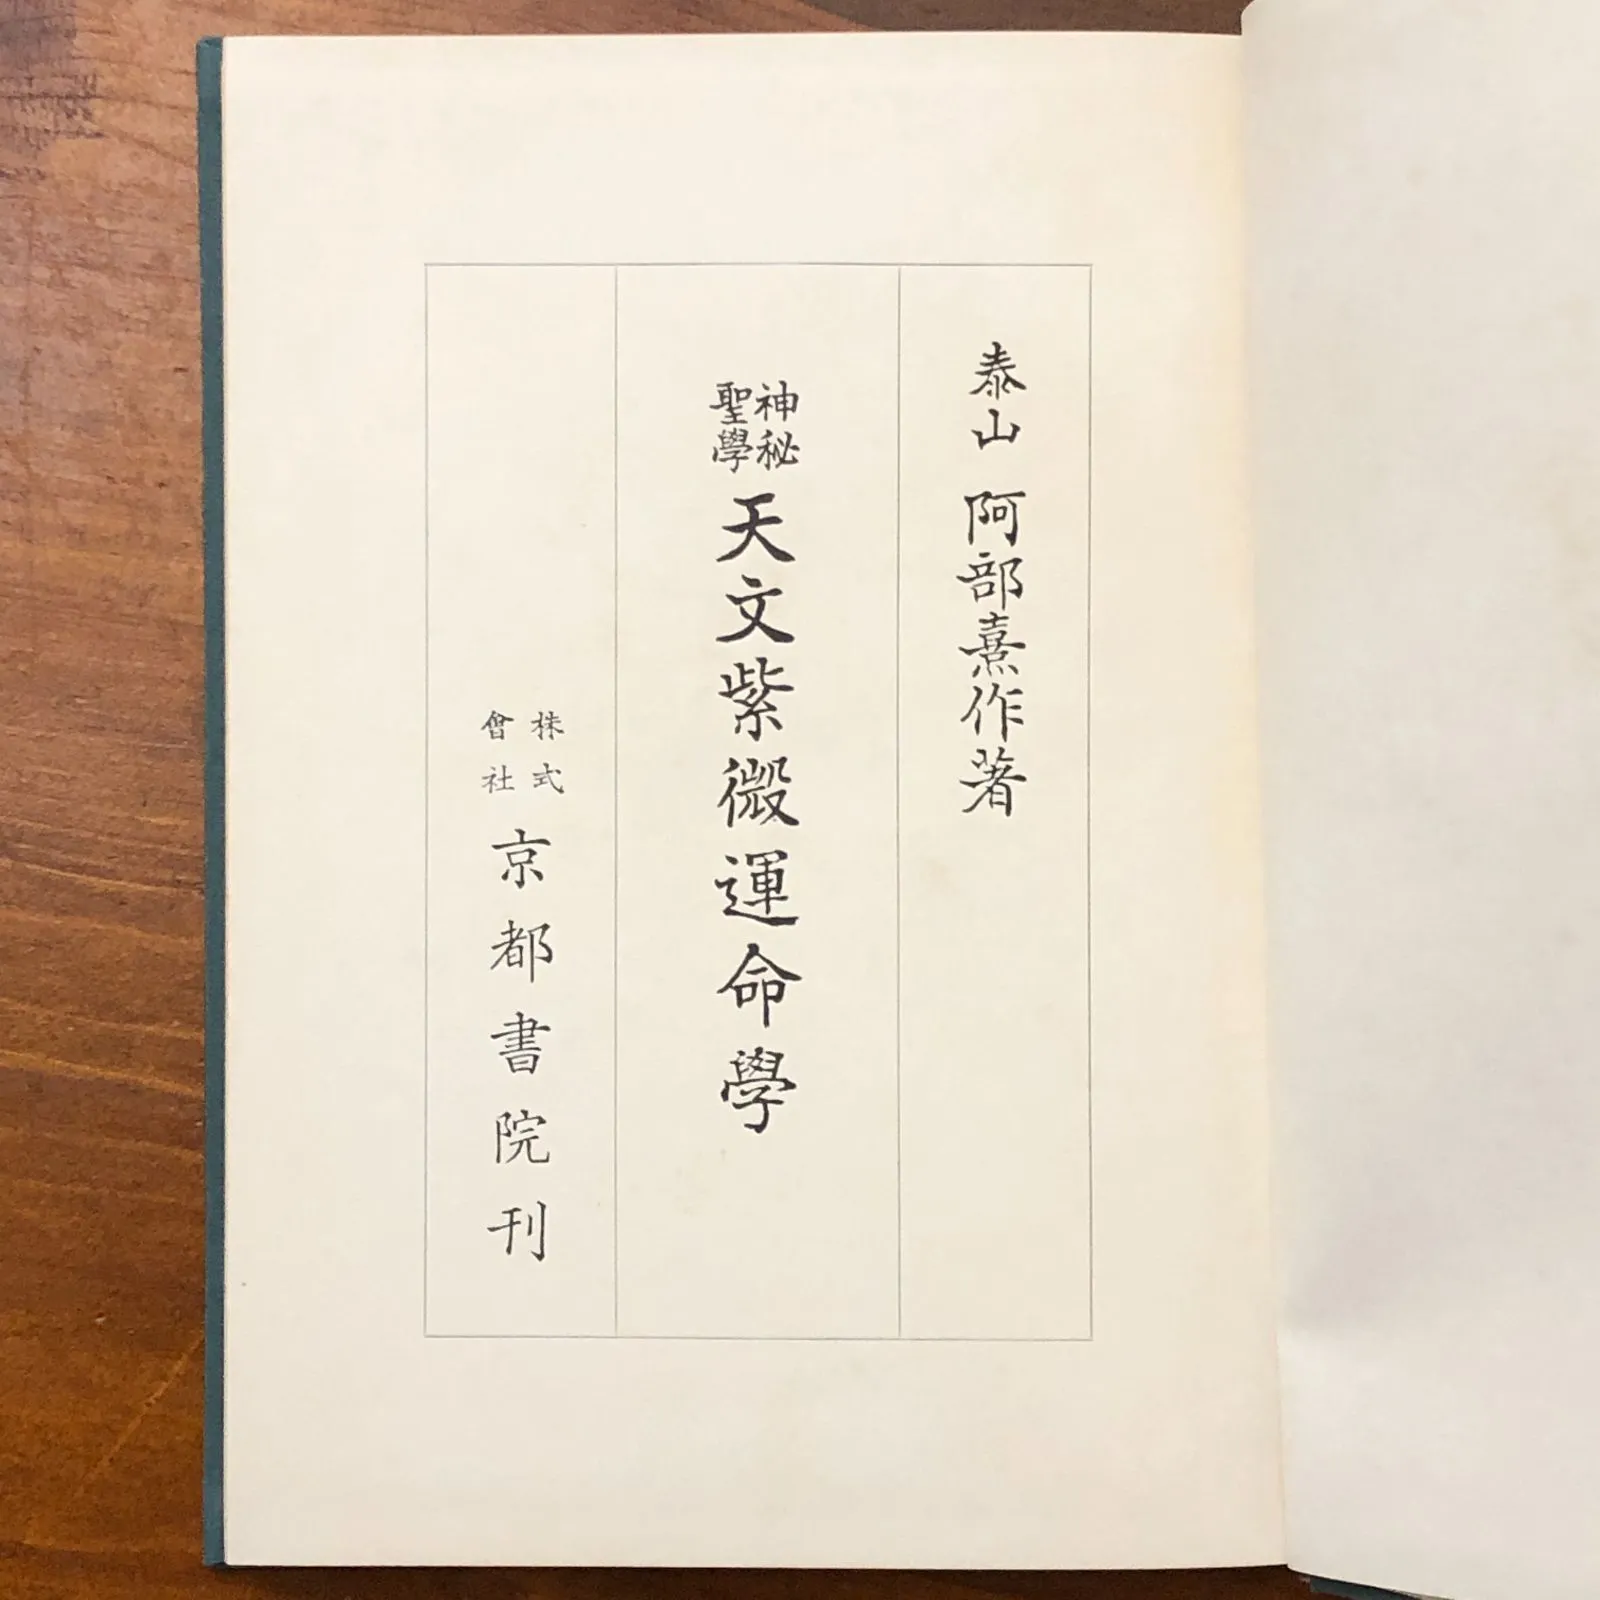 泰山 阿部熹作著
神秘
聖學
天文紫微運命學
株式
會社
京都書院刊